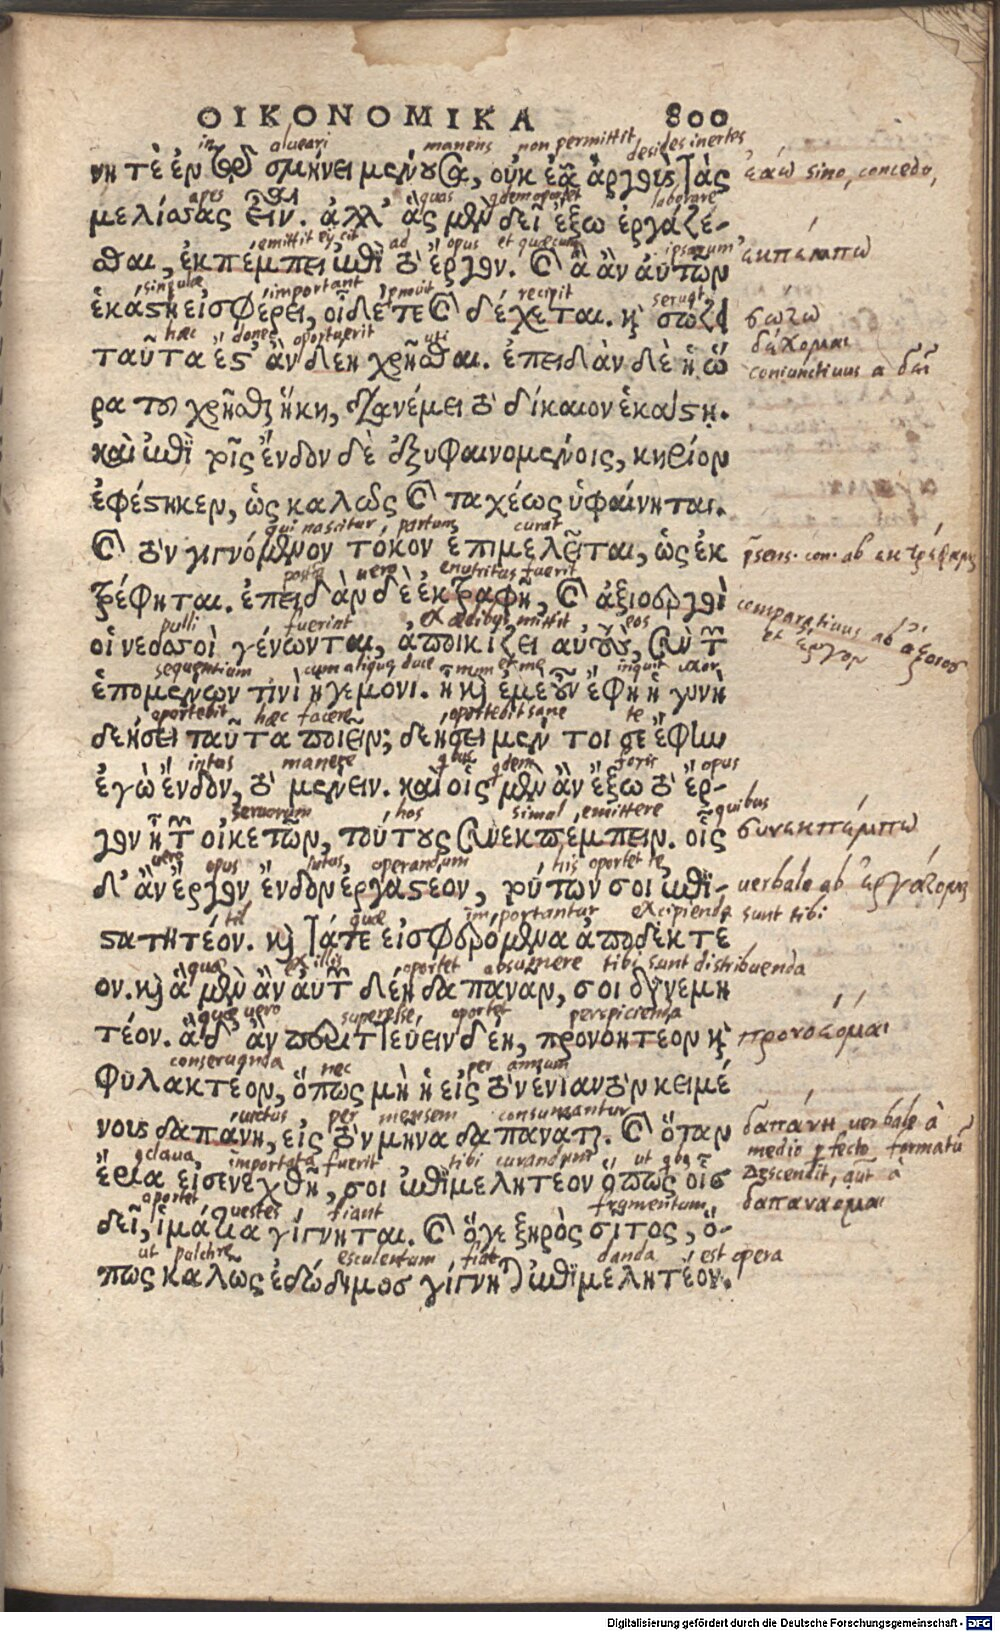 ΟΙΚΟΝΟΜΙΚΑ 800
in alueari manens non permittit desides inertes
νη τὲ ἐν τῷ σμήνει μένουσα, οὐκ ἐᾷ ἀργοὺς τὰς ἐάω sino, concedo,
apes quas quidem oportet laborare
μελίσσας εἶναι. ἀλλ' ἃς μὲν δεῖ ἔξω ἐργάζε-
emittit eijcit ad opus et quæcunque ipsarum
σθαι, ἐκπέμπει ἐπὶ τὸ ἔργον. καὶ ἃ ἂν αὐτῶν ἐκπέμπω
singulæ important recipit seruat
ἑκάστη εἰσφέρει, οἶδέ τε καὶ δέχεται. καὶ σώζει σώζω
δέχομαι
hæc donec oportuerit uti
ταῦτα ἔστ' ἂν δέῃ χρῆσθαι. ἐπειδὰν δὲ ἡ ὥ coniunctiuus a δεῖ
ρα τοῦ χρῆσθαι ἥκῃ, διανέμει τὸ δίκαιον ἑκάστῃ.
καὶ ἐπὶ τοῖς ἔνδον δὲ ἐξυφαινομένοις, κηρίον
ἐφέστηκεν, ὡς καλῶς καὶ ταχέως ὑφαίνηται.
qui nascitur, partum curat
καὶ τὸν γιγνόμενον τόκον ἐπιμελεῖται, ὡς ἐκ
postquam uero enutritus fuerit
τρέφηται. ἐπειδὰν δὲ ἐκτραφῇ, καὶ ἀξιοεργοὶ comparatiuus ab ἄξιος
et ἔργον
pulli fuerint ex ædibus mittit eos
οἱ νεοσσοὶ γένωνται, ἀποικίζει αὐτοὺς, σὺν τῶν
sequentium cum aliquo duce num et me inquit uxor
ἑπομένων τινὶ ἡγεμόνι. ἦ καὶ ἐμὲ οὖν ἔφη ἡ γυνὴ
oportebit hæc facere oportebit sane te
δεήσει ταῦτα ποιεῖν; δεήσει μέν τοι σε ἔφην
intus manere quibus quidem foris opus
ἐγὼ ἔνδον, τὸ μένειν. καὶ οἷς μὲν ἂν ἔξω τὸ ἔρ-
seruorum hos simul emittere quibus
γον ᾖ τῶν οἰκετῶν, τούτους συνεκπέμπειν. οἷς συνεκπέμπω
uero opus intus operandum his oportet te
δ' ἂν ἔργον ἔνδον ἐργαστέον, τούτων σοι ἐπι- uerbale ab ἐργάζομαι
quæ importantur excipienda sunt tibi
στατητέον. καὶ τά τε εἰσφερόμενα ἀποδεκτέ
quæ ex illis oportet absumere tibi sunt distribuenda
ον. καὶ ἃ μὲν ἂν αὐτῶν δέῃ δαπανᾶν, σοι διανεμη
quæ uero superesse, oportet perspicienda
τέον. ἃ δ' ἂν περιττεύειν δέῃ, προνοητέον καὶ προνοέομαι
conseruanda nec per annum
φυλακτέον, ὅπως μὴ ἡ εἰς τὸν ἐνιαυτὸν κειμέ
uictus per mensem consumantur
νους δαπάνη, εἰς τὸν μῆνα δαπανᾶται. καὶ ὅταν δαπάνη uerbale à
medio perfecto formatum
importata fuerit tibi curandum ut quibus
ἔρια εἰσενεχθῇ, σοι ἐπιμελητέον ὅπως οἷς Descendit, aut à
oportet uestes fiant frumentum
δεῖ, ἱμάτια γίγνηται. καὶ ὅγε ξηρὸς σῖτος, ὅ- δαπανάομαι
ut pulchre esculentum fiat danda est opera
πως καλῶς ἐδώδιμος γίγνηται ἐπιμελητέον.
Digitalisierung gefördert durch die Deutsche Forschungsgemeinschaft - DFG